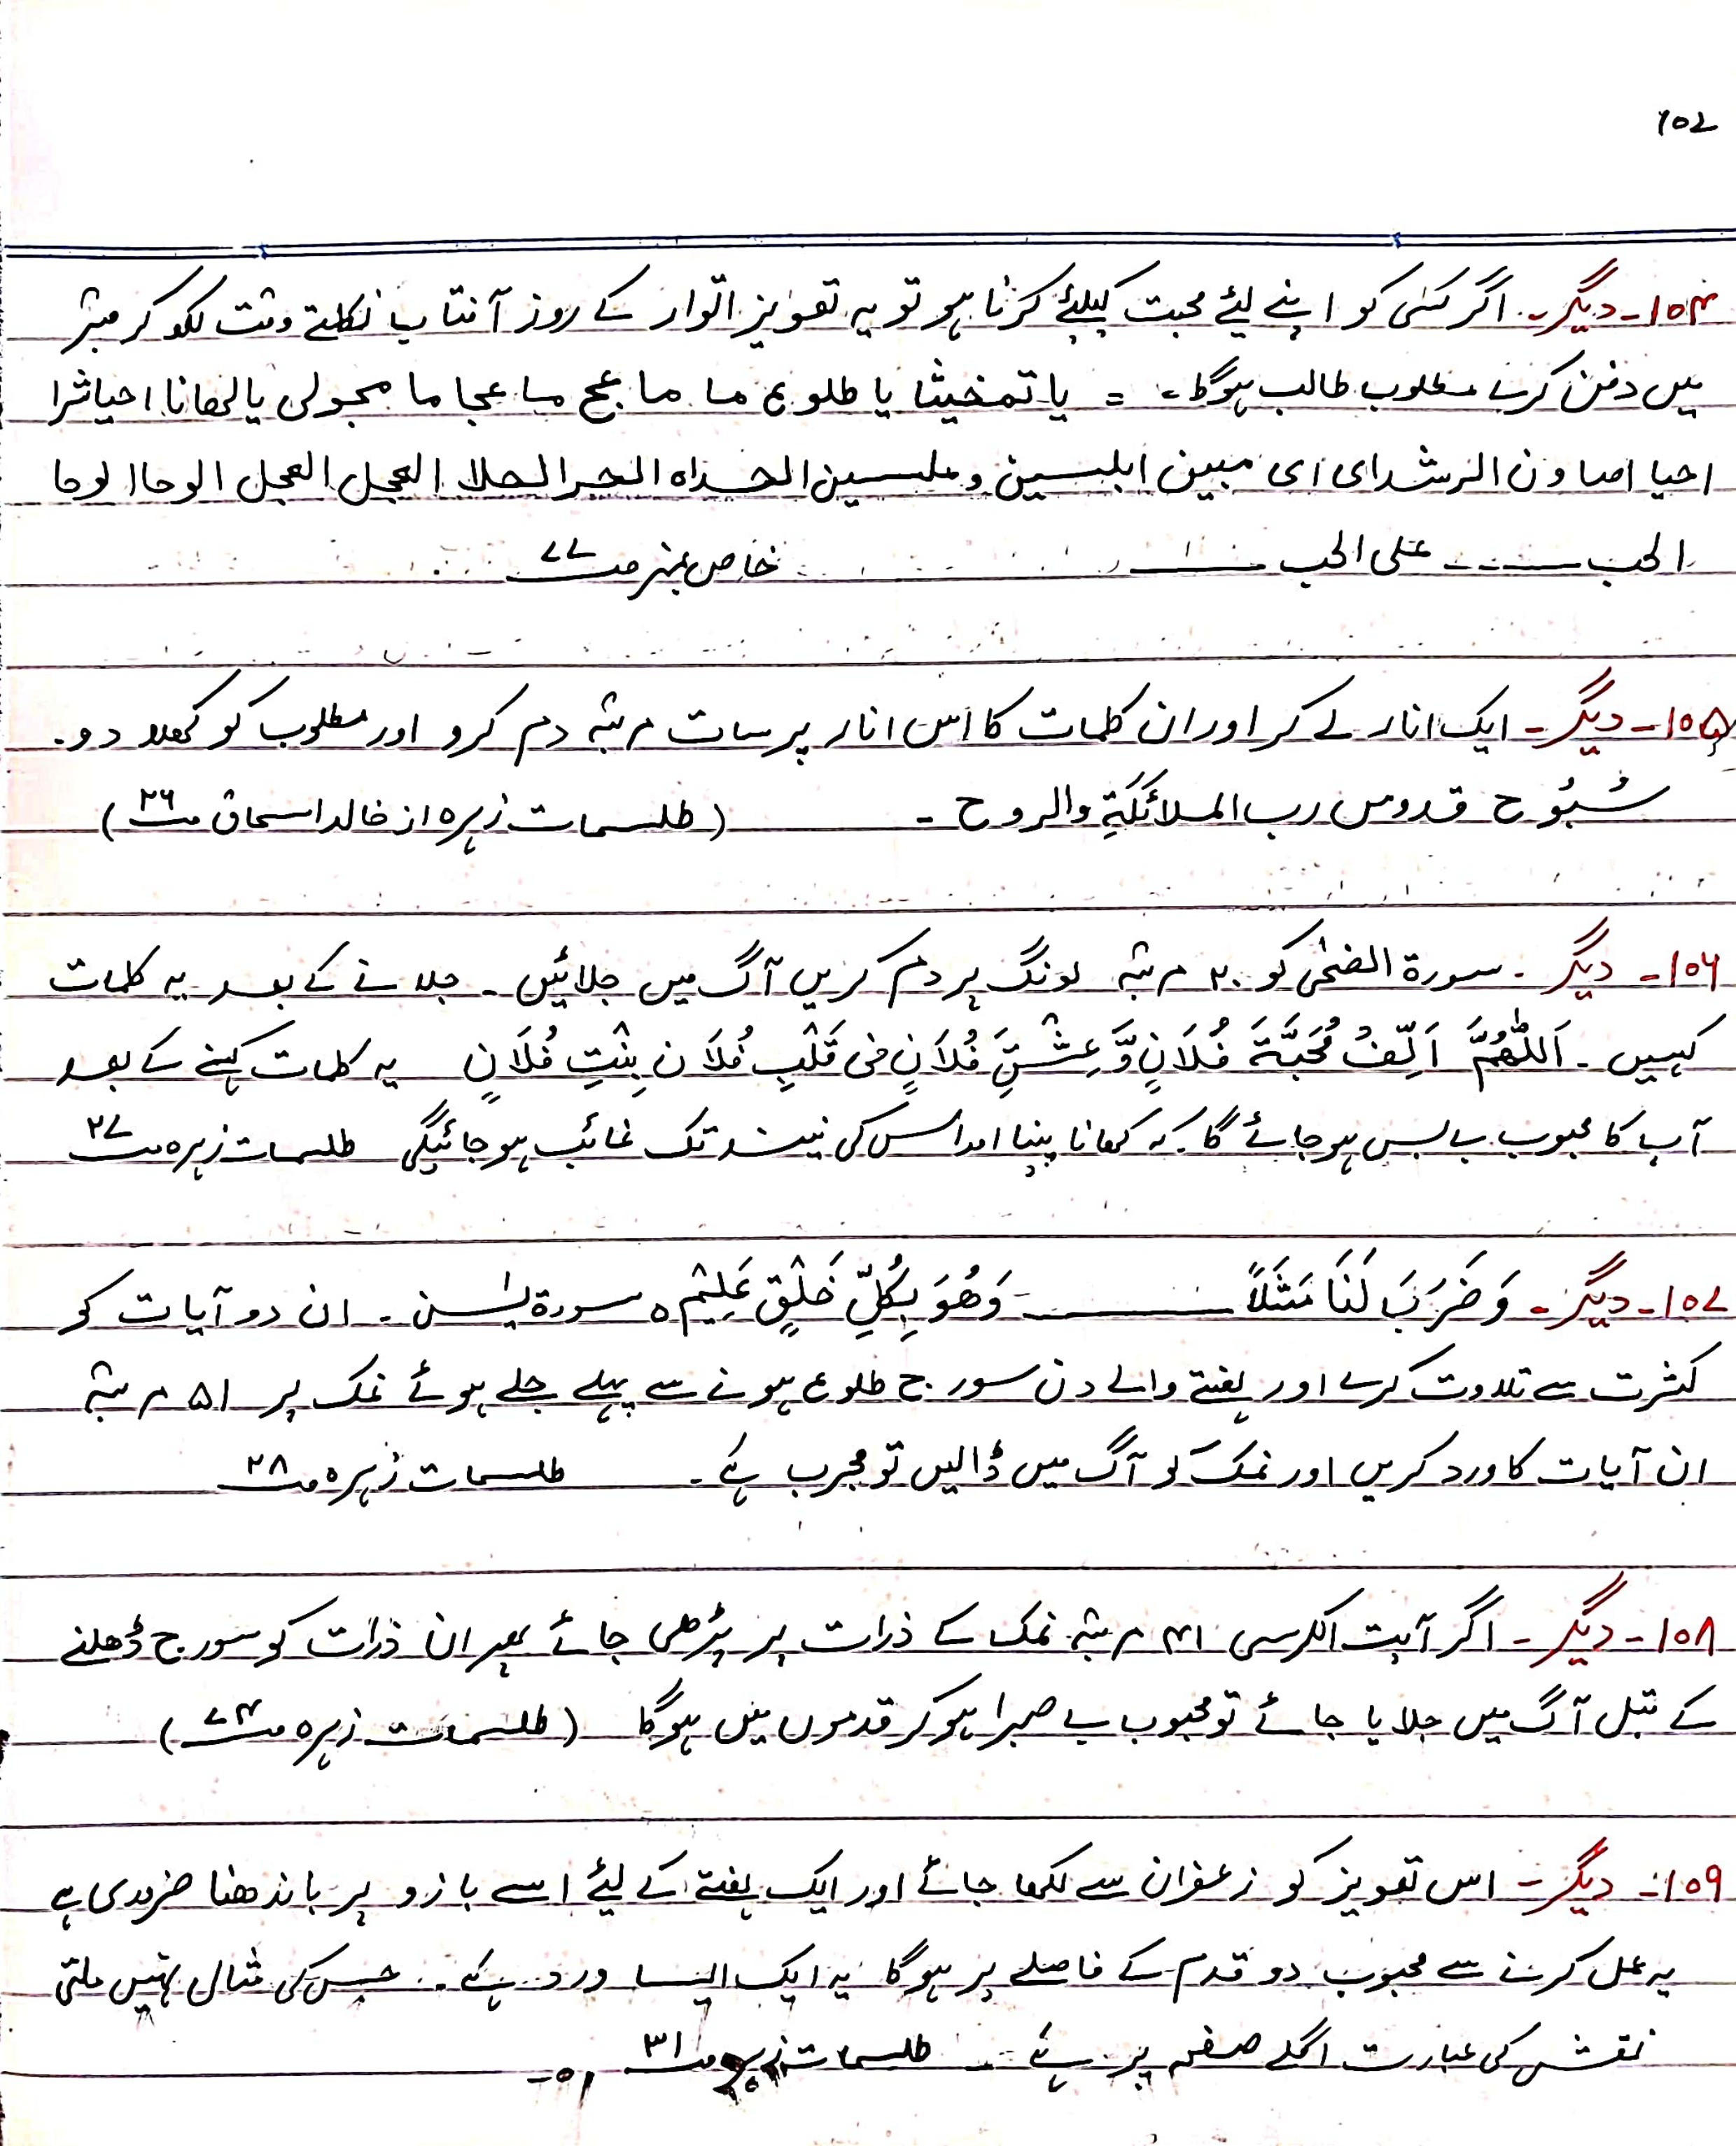 ۱۰۲
۱۰۴- دیگر۔ اگر کسی کو اپنے لیئے محبت کیلئے کرنا ہو تو یہ تعویز اتوار کے روز آفتاب نکلتے وقت لکھ کر قبر
میں دفن کرے مطلوب طالب ہوگا۔ = یا تمخیثا یا طلوع ما ما عج ما عجا ما مجولی یا احیاشرا
احیا اصاون الرشدای ای مبین ابلسین و ملسین الحداہ الحر الحلا العجل العجل الوحا الوحا
الحب ۔۔۔۔ علی الحب ۔۔۔۔ خاص نمبر ص ۷۷
۱۰۵- دیگر۔ ایک انار لے کر اور ان کلمات کا اس انار پر سات مرتبہ دم کرو اور مطلوب کو کھلا دو۔
سُبُّوح قدوس رب الملائکۃِ والروح ۔ (طلسمات زہرہ از خالد اسحاق ص ۲۶)
۱۰۶- دیگر ۔ سورۃ الضحٰی کو ۲۰ مرتبہ لونگ پر دم کریں آگ میں جلائیں ۔ جلانے کے بعد یہ کلمات
کہیں ۔ اَللّٰھُمَّ اَلِّفْ مُحَبَّۃَ فُلَانٍ وَّ عِشْقِ فُلَانٍ فی قَلْبِ فُلَان بِنْتِ فُلَانٍ یہ کلمات کہنے کے بعد
آپ کا محبوب بے بس ہوجائے گا۔ کہ کھانا پینا اور اس کی نیند تک غائب ہوجائیگی طلسمات زہرہ ص ۲۷
۱۰۷- دیگر ۔ وَضَرَبَ لَنَا مَثَلاً ــــــــ وَھُوَ بِکُلِّ خَلْقٍ عَلِیْم ہ سورۃ یٰسن ۔ ان دو آیات کو
کثرت سے تلاوت کرے اور ہفتے والے دن سورج طلوع ہونے سے پہلے جلے ہوئے نمک پر ۵۱ مرتبہ
ان آیات کا ورد کریں اور نمک کو آگ میں ڈالیں تو مجرب ہے ۔ طلسمات زہرہ ص ۲۸
۱۰۸- دیگر ۔ اگر آیت الکرسی ۴۱ مرتبہ نمک کے ذرات پر پڑھی جائے پھر ان ذرات کو سورج ڈھلنے
کے قبل آگ میں جلایا جائے تو محبوب بے صبرا ہوکر قدموں میں ہوگا (طلسمات زہرہ ص ۷۴)
۱۰۹- دیگر ۔ اس تعویز کو زعفران سے لکھا جائے اور ایک ہفتے کے لیئے اسے بازو پر باندھنا ضروری ہے
یہ عمل کرنے سے محبوب دو قدم کے فاصلے پر ہوگا یہ ایک ایسا ورد ہے ۔ جس کی مثال نہیں ملتی
نقش کی عبارت اگلے صفحہ پر ہے ۔ طلسمات زہرہ ص ۳۱